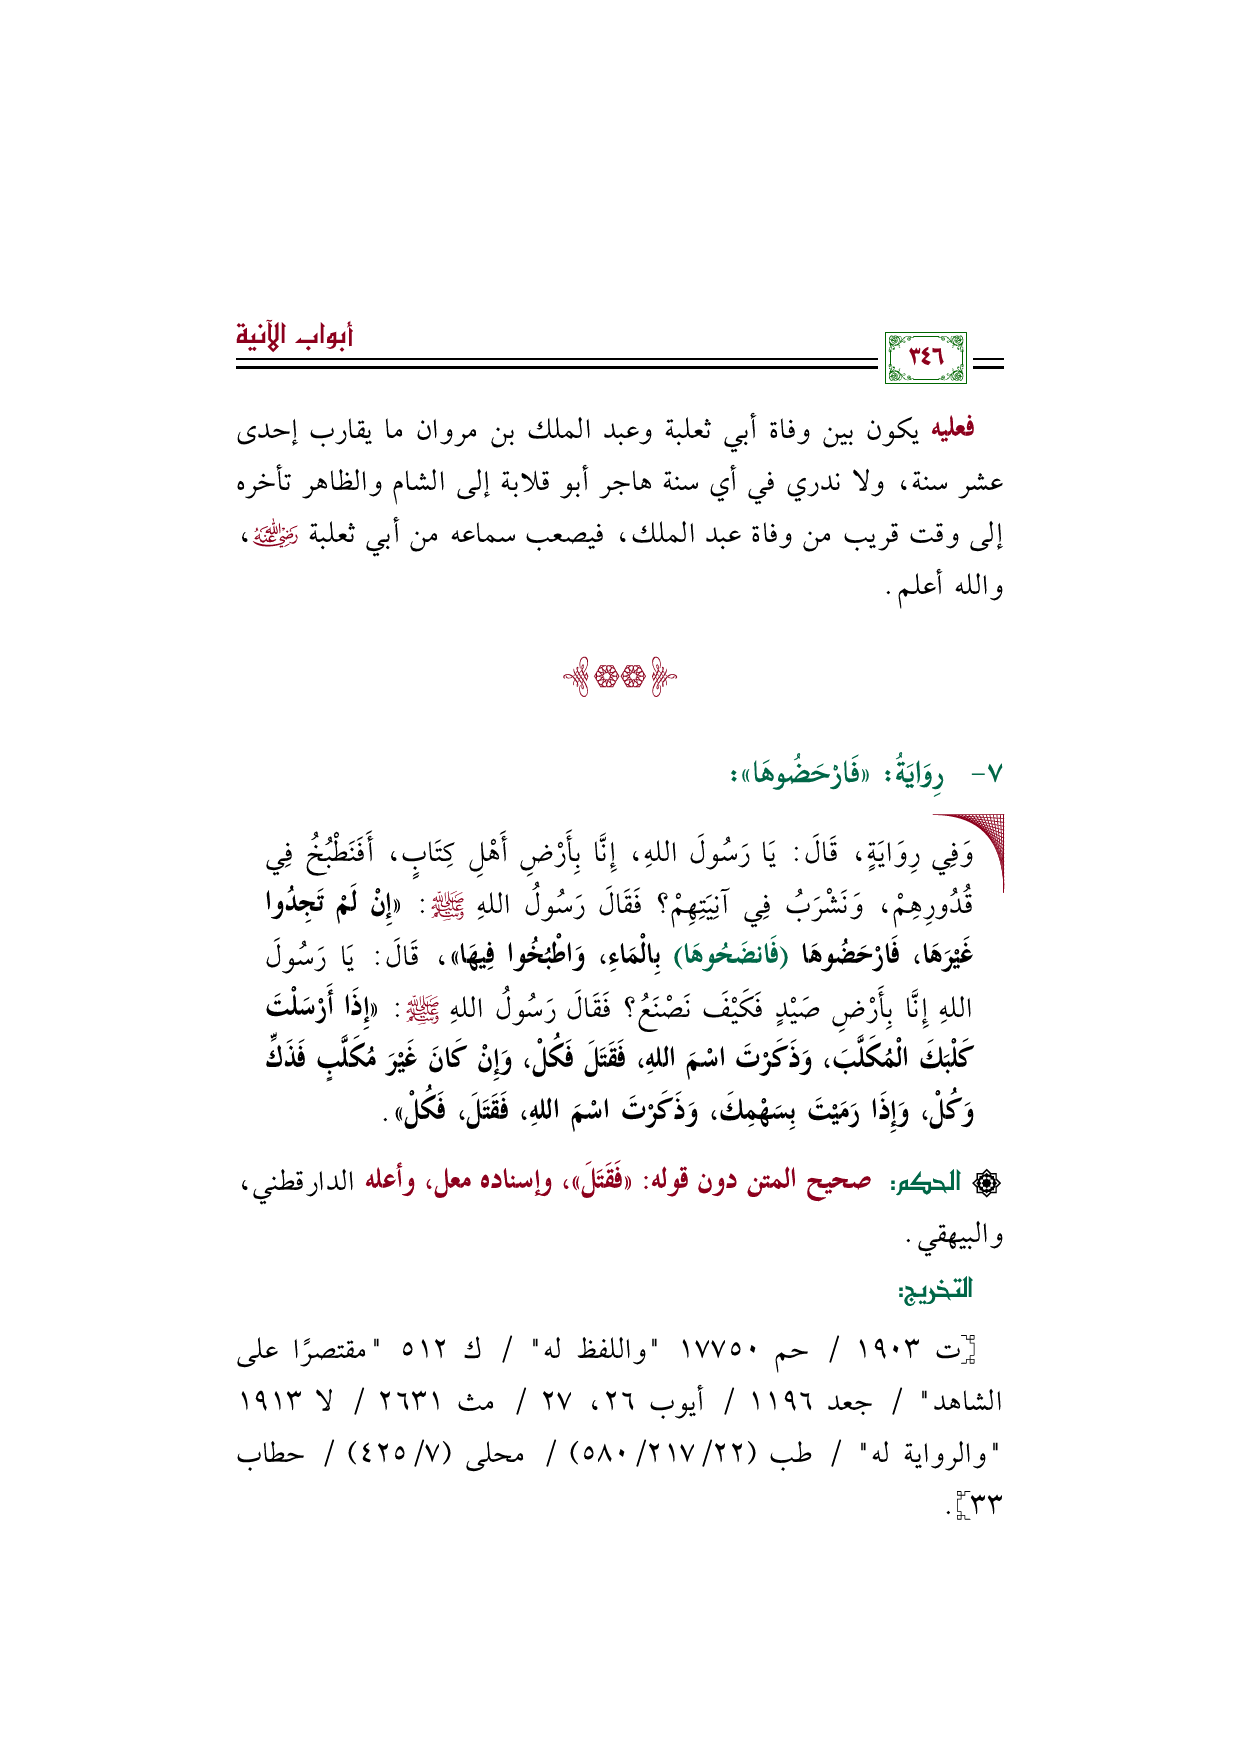 أبواب الآنية
٣٤٦
فعليه يكون بين وفاة أبي ثعلبة وعبد الملك بن مروان ما يقارب إحدى
عشر سنة، ولا ندري في أي سنة هاجر أبو قلابة إلى الشام والظاهر تأخره
إلى وقت قريب من وفاة عبد الملك، فيصعب سماعه من أبي ثعلبة رضي الله عنه،
والله أعلم.
٧- رِوَايَةُ: «فَارْحَضُوهَا»:
وَفِي رِوَايَةٍ، قَالَ: يَا رَسُولَ اللهِ، إِنَّا بِأَرْضِ أَهْلِ كِتَابٍ، أَفَنَطْبُخُ فِي
قُدُورِهِمْ، وَنَشْرَبُ فِي آنِيَتِهِمْ؟ فَقَالَ رَسُولُ اللهِ ﷺ: «إِنْ لَمْ تَجِدُوا
غَيْرَهَا، فَارْحَضُوهَا (فَانضَحُوهَا) بِالْمَاءِ، وَاطْبُخُوا فِيهَا»، قَالَ: يَا رَسُولَ
اللهِ إِنَّا بِأَرْضِ صَيْدٍ فَكَيْفَ نَصْنَعُ؟ فَقَالَ رَسُولُ اللهِ ﷺ: «إِذَا أَرْسَلْتَ
كَلْبَكَ الْمُكَلَّبَ، وَذَكَرْتَ اسْمَ اللهِ، فَقَتَلَ فَكُلْ، وَإِنْ كَانَ غَيْرَ مُكَلَّبٍ فَذَكِّ
وَكُلْ، وَإِذَا رَمَيْتَ بِسَهْمِكَ، وَذَكَرْتَ اسْمَ اللهِ، فَقَتَلَ، فَكُلْ».
الحكم: صحيح المتن دون قوله: «فَقَتَلَ»، وإسناده معل، وأعله الدارقطني،
والبيهقي.
التخريج:
[ت ١٩٠٣ / حم ١٧٧٥٠ "واللفظ له" / ك ٥١٢ "مقتصرًا على
الشاهد" / جعد ١١٩٦ / أيوب ٢٦، ٢٧ / مث ٢٦٣١ / لا ١٩١٣
"والرواية له" / طب (٢٢/ ٢١٧/ ٥٨٠) / محلى (٧/ ٤٢٥) / حطاب
٣٣].